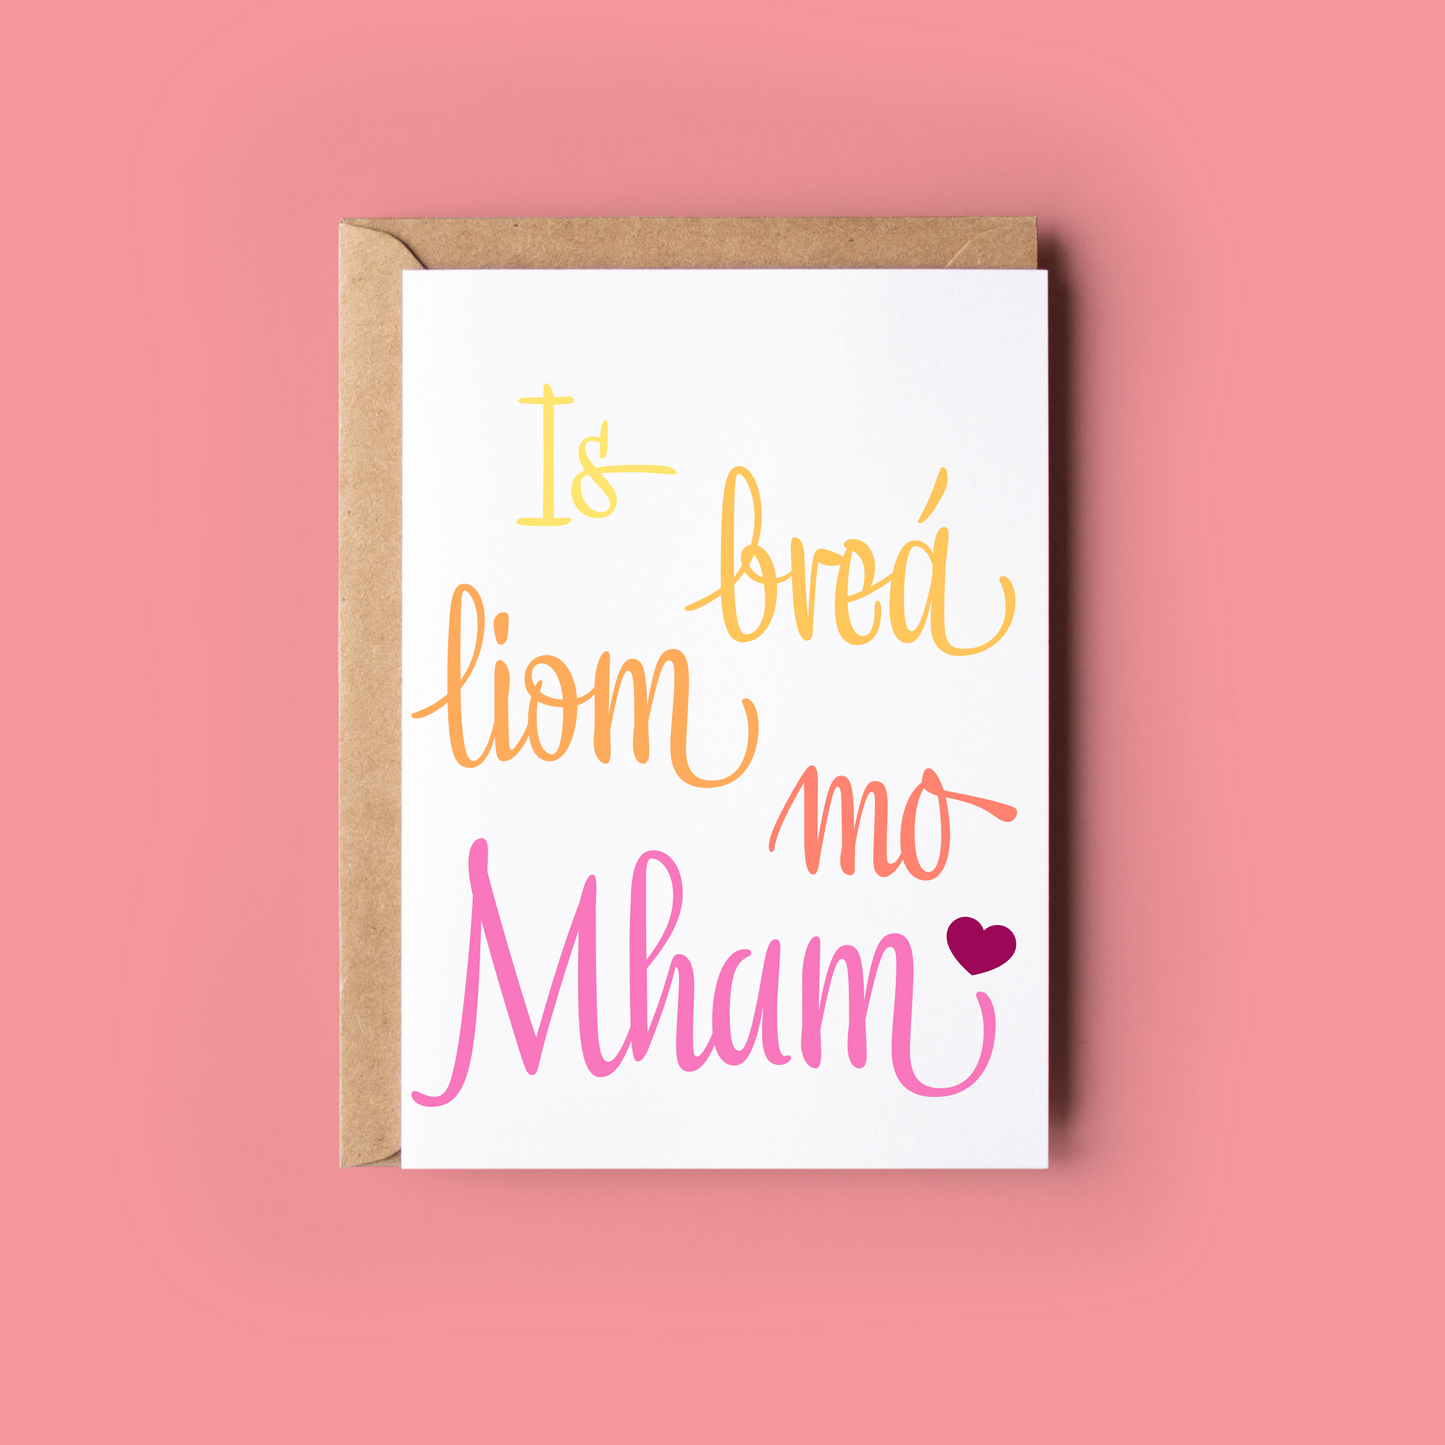 Is
breá
liom
mo
Mham